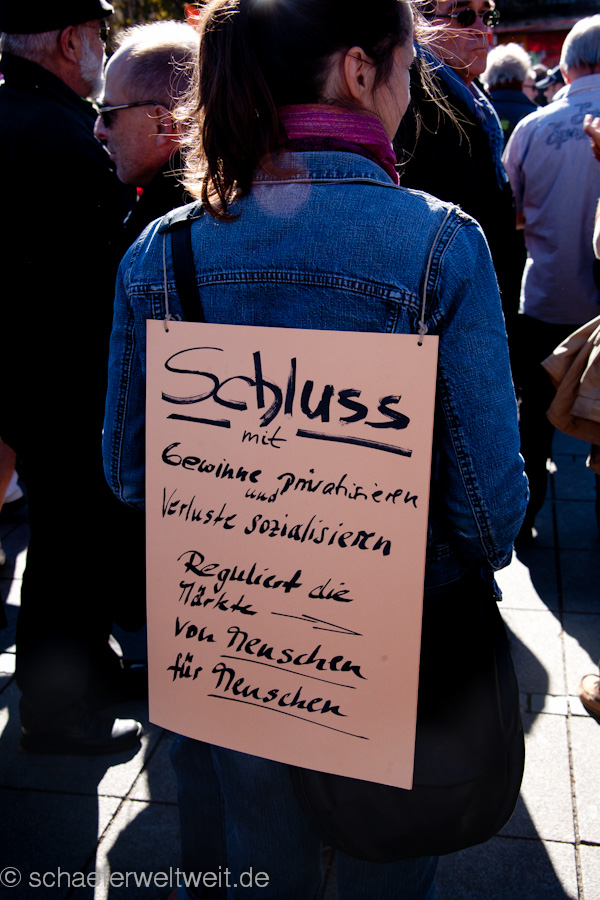 Schluss
mit
Gewinne privatisieren
und
Verluste sozialisieren
Reguliert die
Märkte
von Menschen
für Menschen
© schaeferweltweit.de